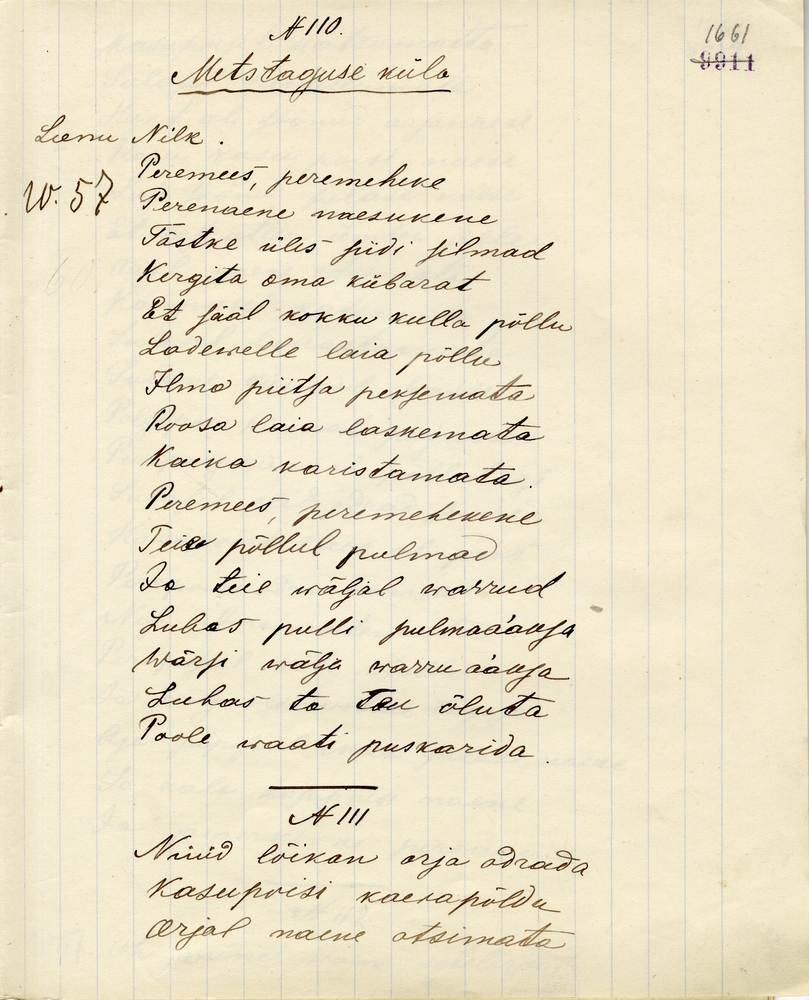 N 110.
1661
9911
Metstaguse küla
Leenu Nilk.
W. 57
Peremees, peremeheke
Perenaene naesukene
Tõstke üles siidi silmad
Kergita oma kübarat
Et sääl kokku kulla põllu
Ladewelle laia põllu
Ilma piitsa peksemata
Roosa laia laskemata
Kaika karistamata.
Peremees, peremehekene
Teie põllul pulmad
Ja teie wäljal warrud
Lubas pulli pulmaaáuga
Wärsi wälja warru ááuga
Lubas ta tuu õluta
Poole waati puskarida.
N 111
Nüüd lõikan orja odrada
Kasupoisi kaerapõldu
Orjal naene otsimata